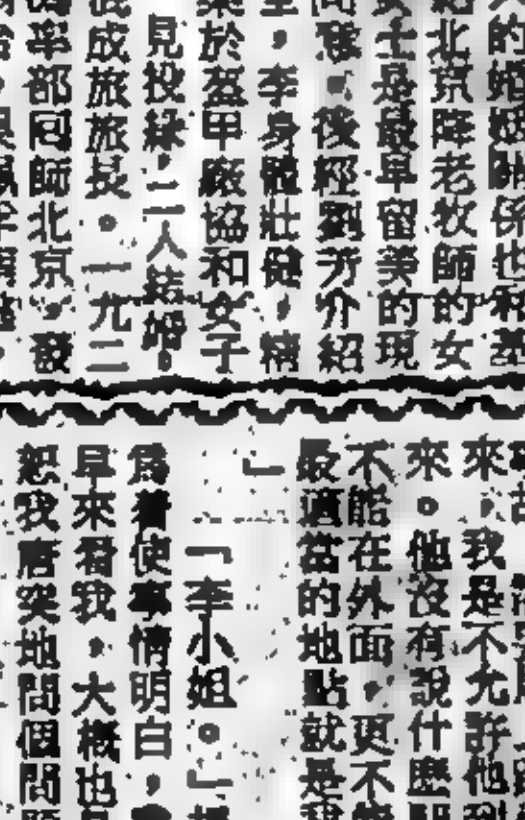 的婚姻關係也和基
北京降老牧師的女
女士是最早留美的現
後經劉芳介紹
，李身體壯健，精
於盔甲廠協和女子
見投緣，二人結婚。
成旅旅長。一九二
率部回師北京，發
來，我是不允許他到
來。他沒有說什麼
不能在外面，更不能
最適當的地點就是我
」
「李小姐。」
爲着使事情明白，
早來看我，大概也是
恕我唐突地問個問